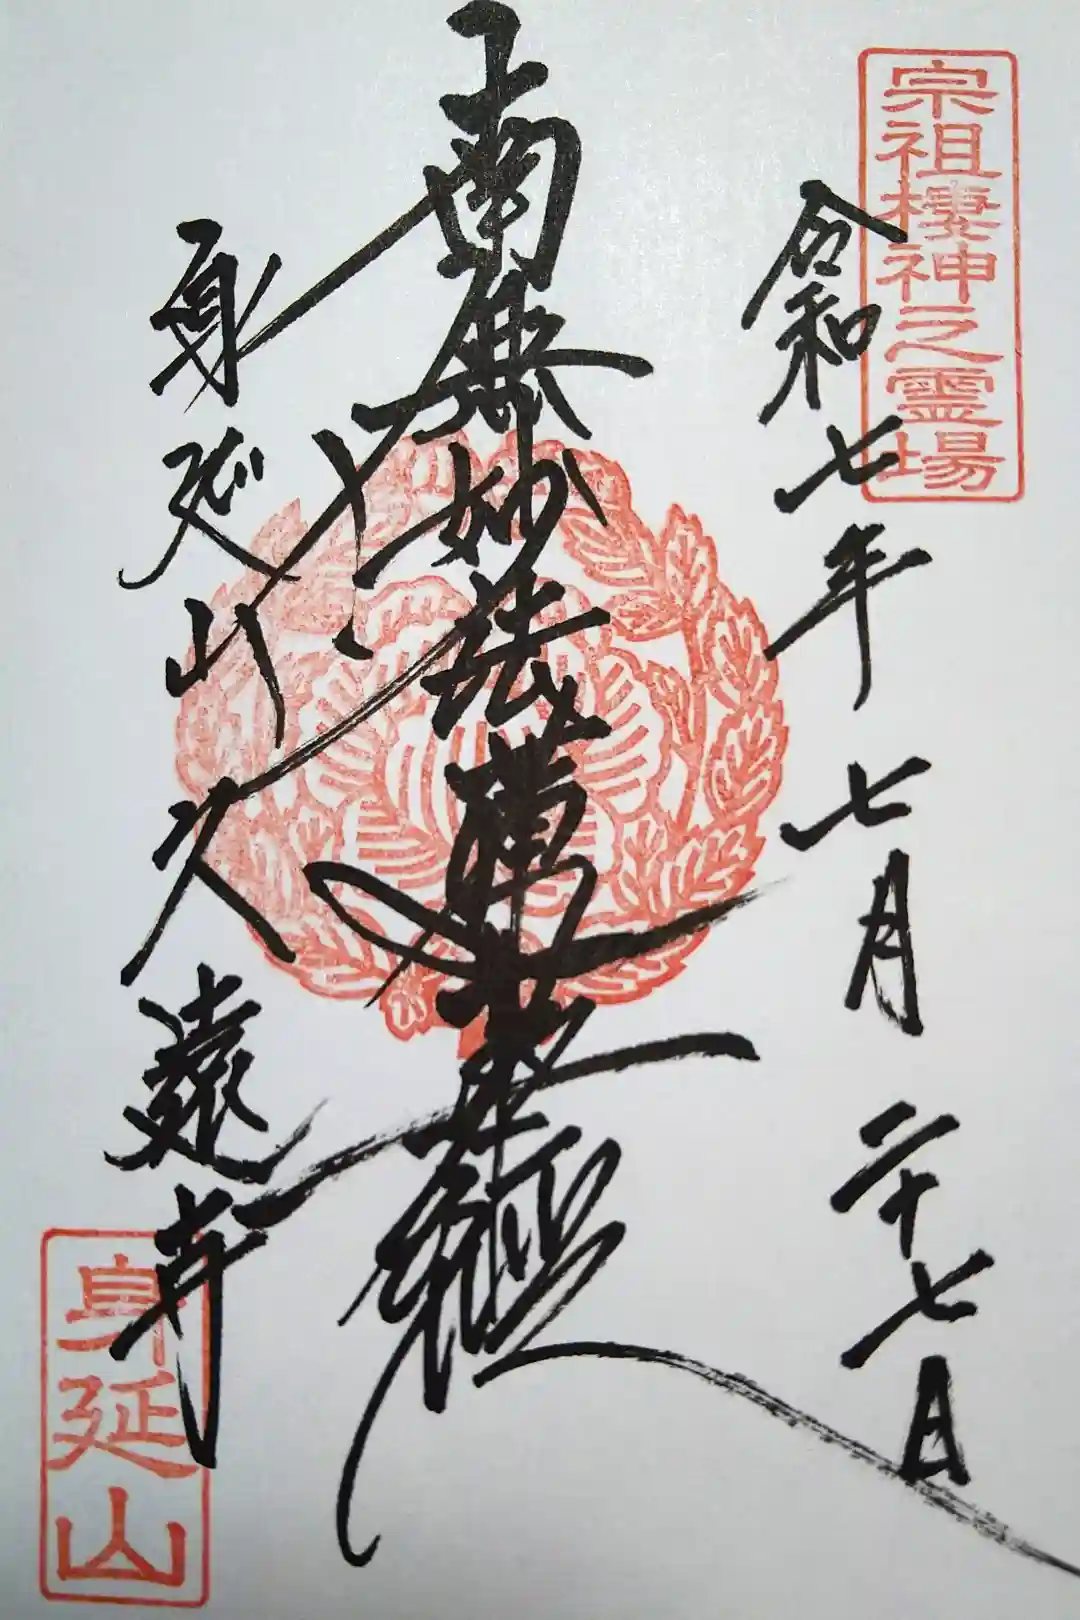 宗祖棲神之霊場
令和七年 七月 二十七日
南無妙法蓮華経
身延山久遠寺
身延山